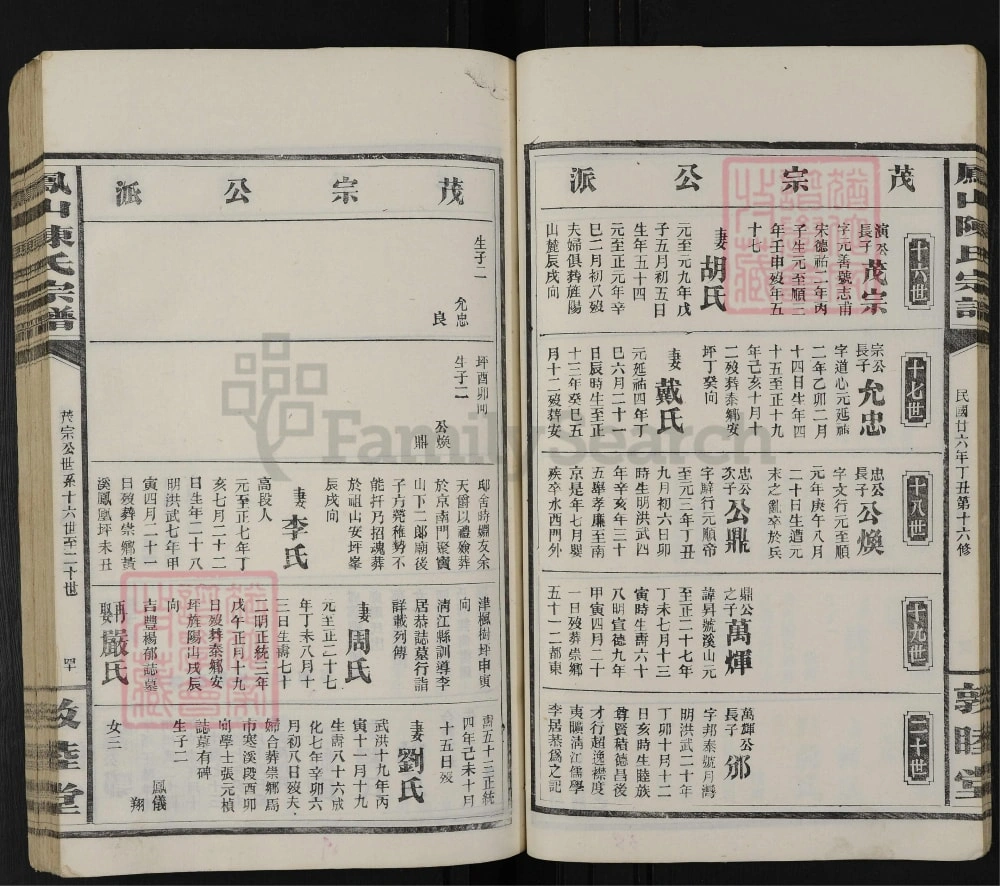 鳳山陳氏宗譜
民國廿六年丁丑第十六修
敦睦堂
茂宗公派
十六世
演公長子茂宗
字元善號志甫
宋德祐二年丙
子生元至順三
年壬申歿年五
十七
妻胡氏
元至元九年戊
子五月初五日
生年五十四
元至正元年辛
巳二月初八歿
夫婦俱葬旌陽
山麓辰戌向
十七世
宗公長子允忠
字道心元延祐
二年乙卯二月
十四日生年四
十五至正十九
年己亥十月十
二歿葬秦鄉安
坪丁癸向
妻戴氏
元延祐四年丁
巳六月二十一
日辰時生至正
十三年癸巳五
月十二歿葬安
十八世
忠公長子公煥
字文行元至順
元年庚午八月
二十日生遭元
末之亂卒於兵
忠公次子公鼎
字
行元順帝
至元三年丁丑
九月初六日卯
時生明洪武四
年辛亥年三十
五舉孝廉至南
京是年七月嬰
疾卒水西門外
十九世
鼎公之子萬輝
諱昇號溪山元
至正二十七年
丁未七月十三
寅時生壽六十
八明宣德九年
甲寅四月二十
一日歿葬崇鄉
五十一二都東
二十世
萬輝公長子邠
字邦泰號月灣
明洪武二十年
丁卯十月十二
日亥時生睦族
尊賢積德昌後
才行超邁襟度
夷曠清江儒學
李居恭為之記
茂宗公派
生子二
允忠
良
坪酉卯向
生子二
公煥
鼎
邸舍時嫺友余
天爵以禮殮葬
於京南門聚寶
山下二郎廟後
子方煢稚勢不
能扞乃招魂葬
於祖山安坪峯
辰戌向
妻李氏
高段人
元至正七年丁
亥七月二十二
日生年二十八
明洪武七年甲
寅四月二十一
日歿葬崇鄉黃
溪鳳凰坪未丑
津楓樹坪申寅
向
清江縣訓導李
居恭誌墓行詣
詳載列傳
妻周氏
元至正二十七
年丁未八月十
三日生壽七十
二明正統三年
戊午正月十九
日歿葬秦鄉安
坪旌陽山戌辰
向
吉豐楊郁誌墓
再娶嚴氏
壽五十三正統
四年己未十月
十五日歿
妻劉氏
武洪十九年丙
寅十一月十九
生壽八十六成
化七年辛卯六
月初八日歿夫
婦合葬崇鄉馬
市寒溪段酉卯
向學士張元楨
誌墓有碑
生子二
鳳儀
翔
女三
鳳山陳氏宗譜
茂宗公世系十六世至二十世
四十
敦睦堂
FamilySearch